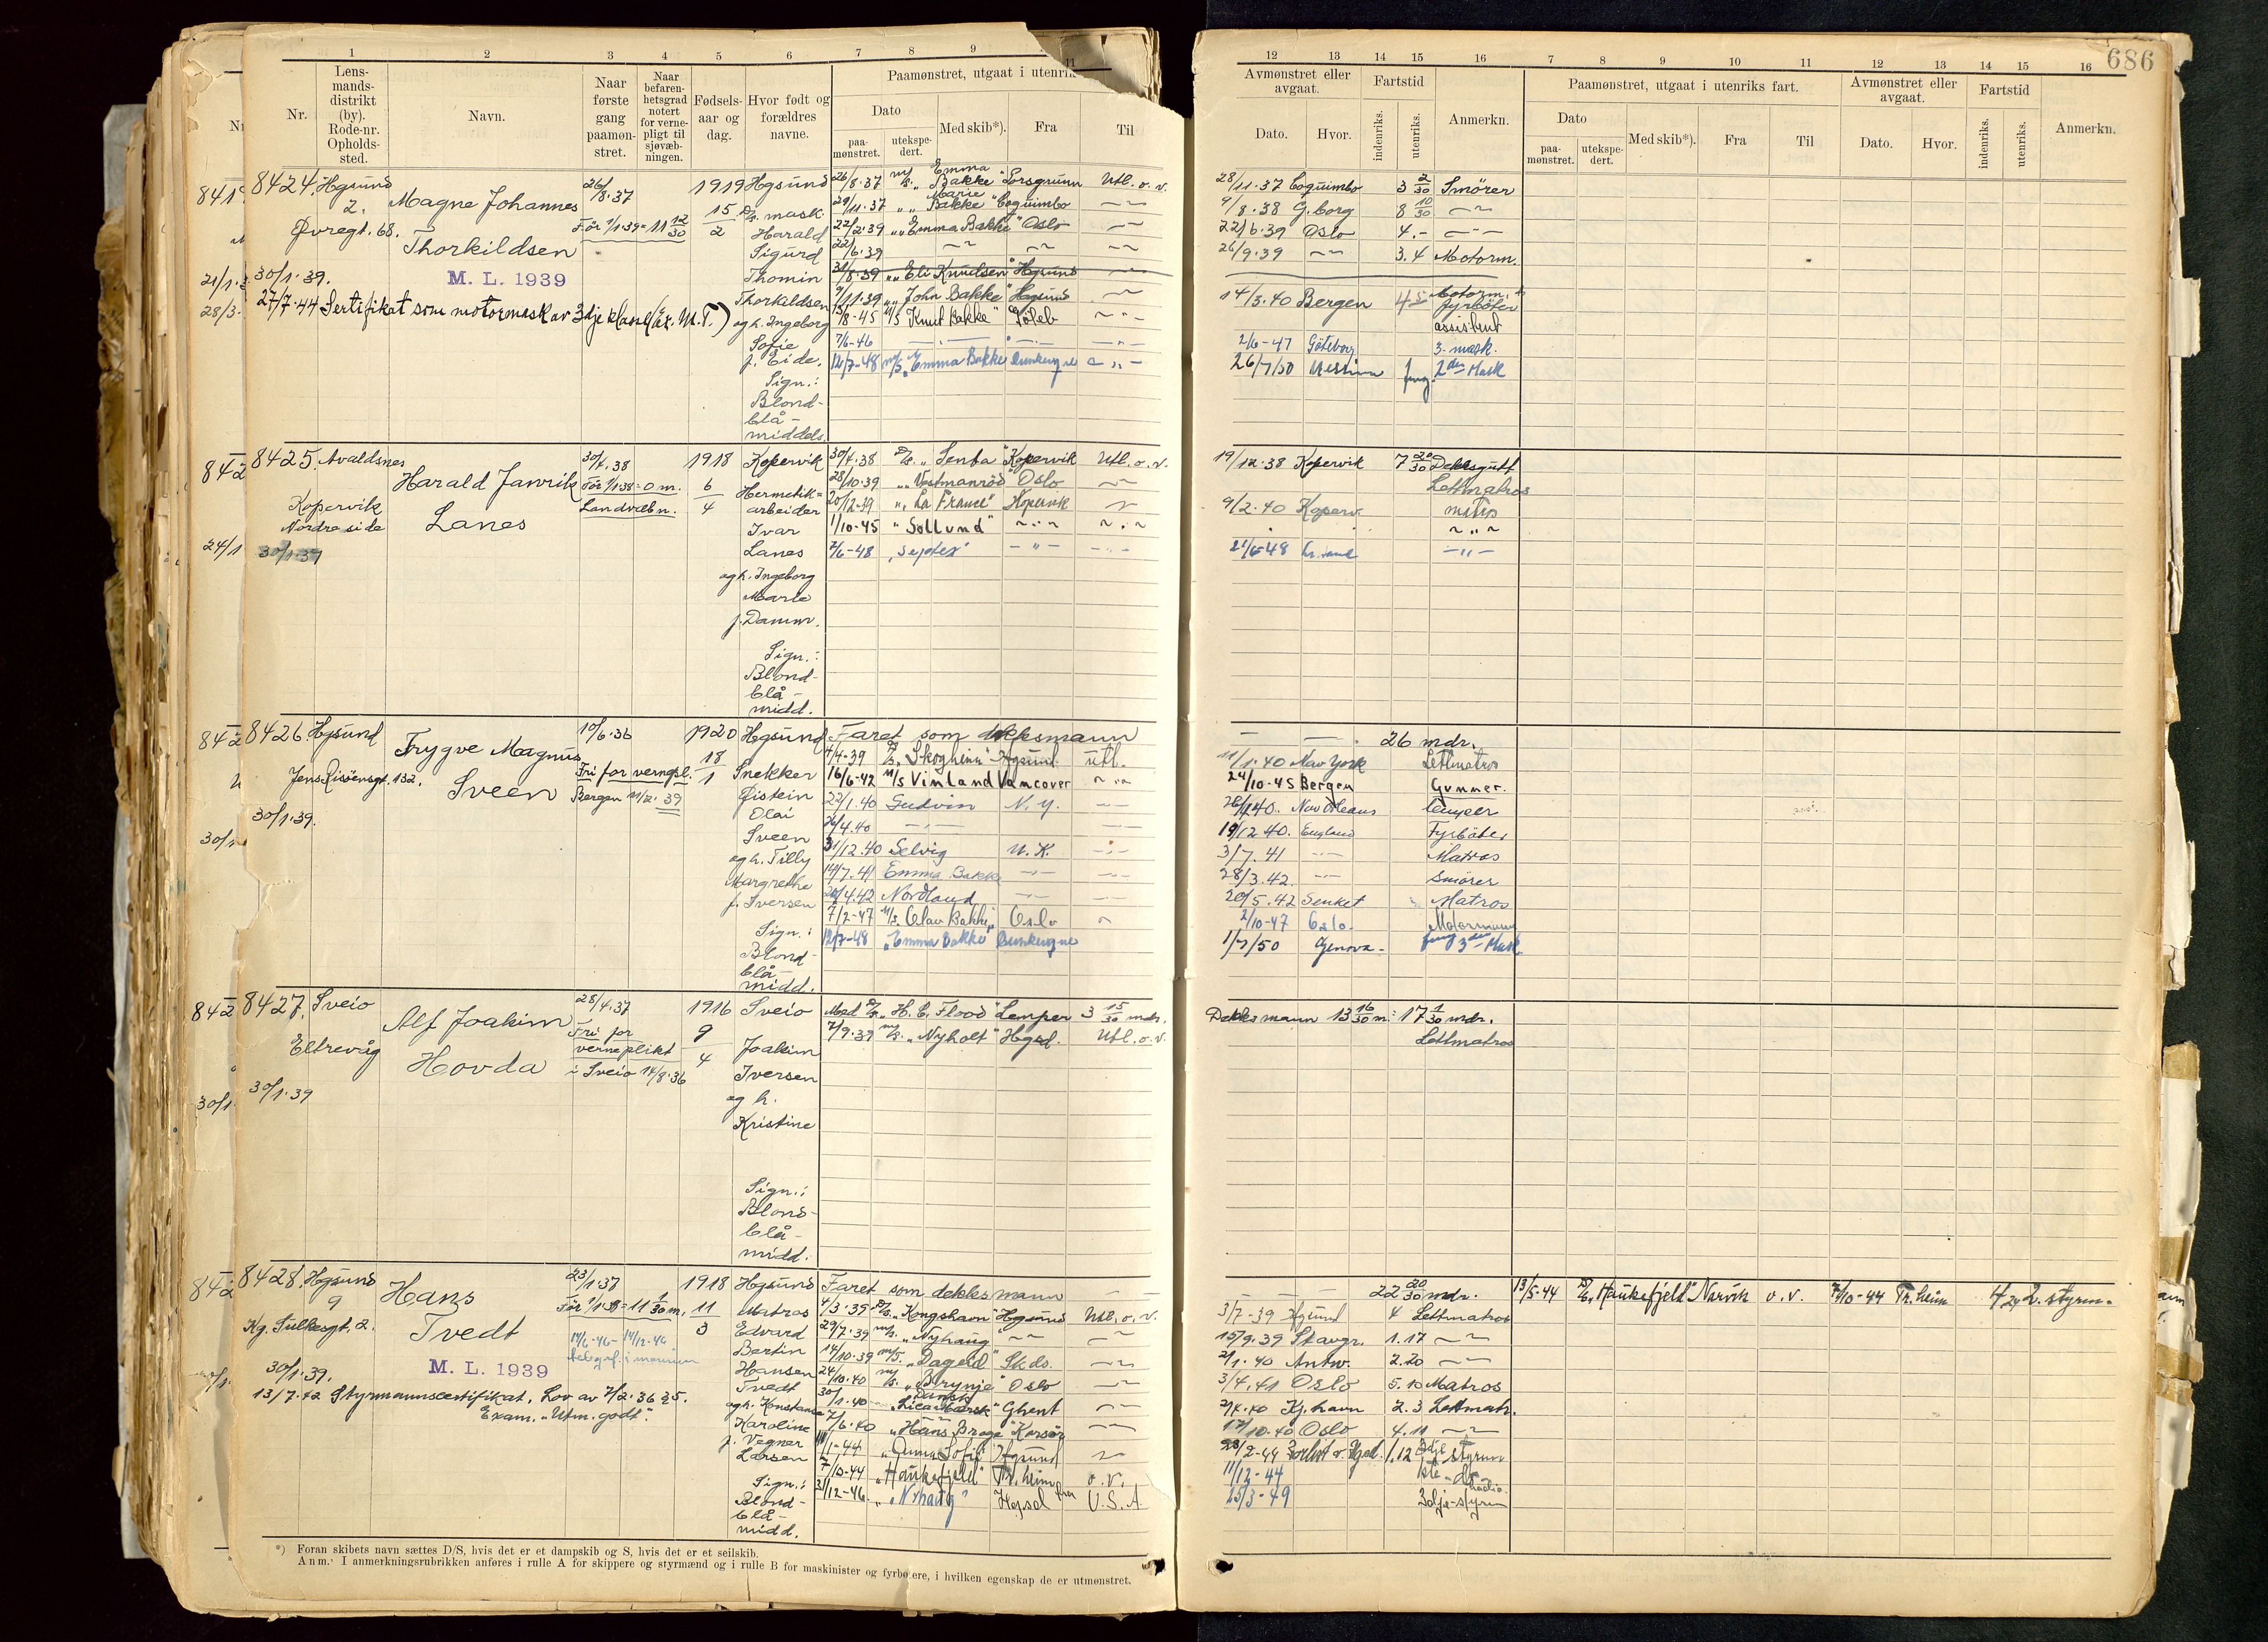 686
1 2 3 4 5 6 7 8 9 11
Nr.
Lens-
mands-
distrikt
(by).
Rode-nr.
Opholds-
sted.
Navn.
Naar
første
gang
paamøn-
stret.
Naar
befaren-
hetsgrad
notert
for verne-
pligt til
sjøvæb-
ningen.
Fødsels-
aar og
dag.
Hvor født og
forældres
navne.
Paamønstret, utgaat i utenri
Dato
paa-
mønstret.
utekspe-
dert.
Med skib*).
Fra
Til
12 13 14 15 16 7 8 9 10 11 12 13 14 15 16
Avmønstret eller
avgaat.
Dato.
Hvor.
Fartstid
indenriks.
utenriks.
Anmerkn.
Paamønstret, utgaat i utenriks fart.
Dato
paa-
mønstret.
utekspe-
dert.
Med skib*).
Fra
Til
Avmønstret eller
avgaat.
Dato.
Hvor.
Fartstid
indenriks.
utenriks.
Anmerkn.
8424. Hgsund
2.
Øvregt. 68.
Magne Johannes
Thorkildsen
M. L. 1939
30/1.39.
27/7.44 Sertifikat som motormask av 3dje klasse (ex. M.T.)
26/8.37
Før 1/1.39 = 11 12/30
1919
15/2
Hgsund
mask.
Harald
Sigurd
Thomin
Thorkildsen
og h. Ingeborg
Sofie
f. Eide.
Sign.:
Blond-
blå-
middels.
26/8.37 m/s. "Emma Bakke" Porsgrunn Utl. o. v.
29/11.37 " "Marie Bakke" Coquimbo
22/2.39 " "Emma Bakke" Oslo
22/6.39
31/8.39 " "Eli Knudsen" Hgsund
11.39 " "John Bakke" Hgsund
8-45 M/S "Knut Bakke" Göteb
7/6-46
12/7-48 m/s "Emma Bakke" Dunkerque
28/11.37 Coquimbo 3 2/30 Smører
9/8.38 G.borg 8 10/30
22/6.39 Oslo 4.-
26/9.39 3.4 Motorm.
14/3.40 Bergen 45 Motorm.
fyrbøter
assistent
2/6-47 Göteborg 3. mask.
26/7/50 Messina fung. 2den Mask
8425. Avaldsnes
Kopervik
Nordre side
30/1.39
Harald Janrik
Lanes
30/4.38
Før 1/1.38 = 0 m.
Landvæbn.
1918
6/4
Kopervik
Hermetik=
arbeider
Ivar
Lanes
og h. Ingeborg
Marie
f. Damm.
Sign.:
Blond-
blå-
midd.
30/4.38 D/s. "Senta" Kopervik Utl. o. v.
28/10.39 " "Vestmanrød" Oslo
20/12-39 " "La France" Kopervik
1/10-45 " "Sollund"
7/6-48 "Septer"
19/12.38 Kopervik 7 20/30 Dekksgutt
Lettmatros
9/2.40 Koperv. matros
21/6-48 Kr.sand
8426. Hgsund
Jens Risøensgt. 132.
30/1.39.
Trygve Magnus
Sveen
10/6.36
Fri for vernepl.
Bergen 11/2. 39
1920
18/1
Hgsund
Snekker
Øistein
Olai
Sveen
og h. Tilly
Margrethe
f. Iversen
Sign.:
Blond-
blå-
midd.
Faret som dekksmann
26 mdr.
4/4-39 D/s. "Skogheim" Hgsund. utl.
16/6-42 M/S Vinland Vancover
22/1.40 Gudvin N.Y.
26/4.40
31/12.40 Selvig U.K.
14/7.41 Emma Bakke
20/4.42 Nordland
7/2-47 M/S "Olav Bakke" Oslo
12/7-48 "Emma Bakke" Dunkerque
11/1.40 New York Lettmatros
24/10-45 Bergen Gunner.
26/4.40. New Orleans Lemper
19/12 40. England Fyrbøter
3/7.41 Matros
28/3.42. Smører
20/5.42 Senket Matros
2/10-47 Oslo. Motormann
1/7/50 Genova. fung 3die Mask.
8427. Sveio
Eltrevåg
30/1.39
Alf Joakim
Hovda
28/4.37
Fri for
verneplikt
i Sveio 14/8.36
1916
9/4
Sveio
Joakim
Iversen
og h.
Kristine
Sign.:
Blond-
blå-
midd.
Med D/s. "H. C. Flood" Lemper 3 15/30 mdr.
7/9.39 m/s. "Nyholt" Hgsd. Utl. o. v.
Dekksmann 13 16/30 m: 17 1/30 mdr.
Lettmatros
8428. Hgsund
9
Kg. Sulkesgt. 2.
30/1.39.
Hans
Tvedt
M. L. 1939
13/7.42 Styrmannssertifikat. Lov av 7/2.36 § 5.
Exam. "Utm. godt".
23/1.37
Før 1/1.38 = 11 1/30 m.
14/6-46 - 14/12-46
1918
11/3
Hgsund
Matros
Edvard
Bertin
Hansen
Tvedt
og h. Konstanse
Karoline
f. Vegner
Larsen
Sign.:
Blond-
blå-
midd.
Faret som dekksmann
22 20/30 mdr.
4/3.39 D/s. "Kongshavn" Hgsund Utl. o. v.
29/7.39 m/s. "Nyhaug"
14/10.39 m/s. "Dageid" Sk.ds.
24/10.40 m/s. "Brynje" Oslo
30/1.40 Dansk "Lica Mærsk" Ghent
7/6.40 "Hans Broge" Korsør
11/1-44 "Anna Sofie" Hgsund
7/10-44 "Haukefjeld" Tr.heim o. v.
31/12-46. " "Nyhaug" Hgsd fra U.S.A.
3/7-39 Hgsund 4 Lettmatros
15/9.39 Stavgr. 1.17
2/1.40 Antw. 2.20
3/4.41 Oslo 5.10 Matros
2/4.40 Kj.havn 2.3 Lettmatr.
17/10.40 Oslo 4.11
28/2-44 Forlist v. Hgsd. 1.12 3dje styrm
11/12-44 1ste
25/3-49 3dje-styrm
13/5-44 D/s. "Haukefjeld" Narvik o. v. 7/10-44 Tr.heim 4.24 2. styrm.
*) Foran skibets navn sættes D/S, hvis det er et dampskib og S, hvis det er et seilskib.
Anm. I anmerkningsrubrikken anføres i rulle A for skippere og styrmænd og i rulle B for maskinister og fyrbøtere, i hvilken egenskap de er utmønstret.